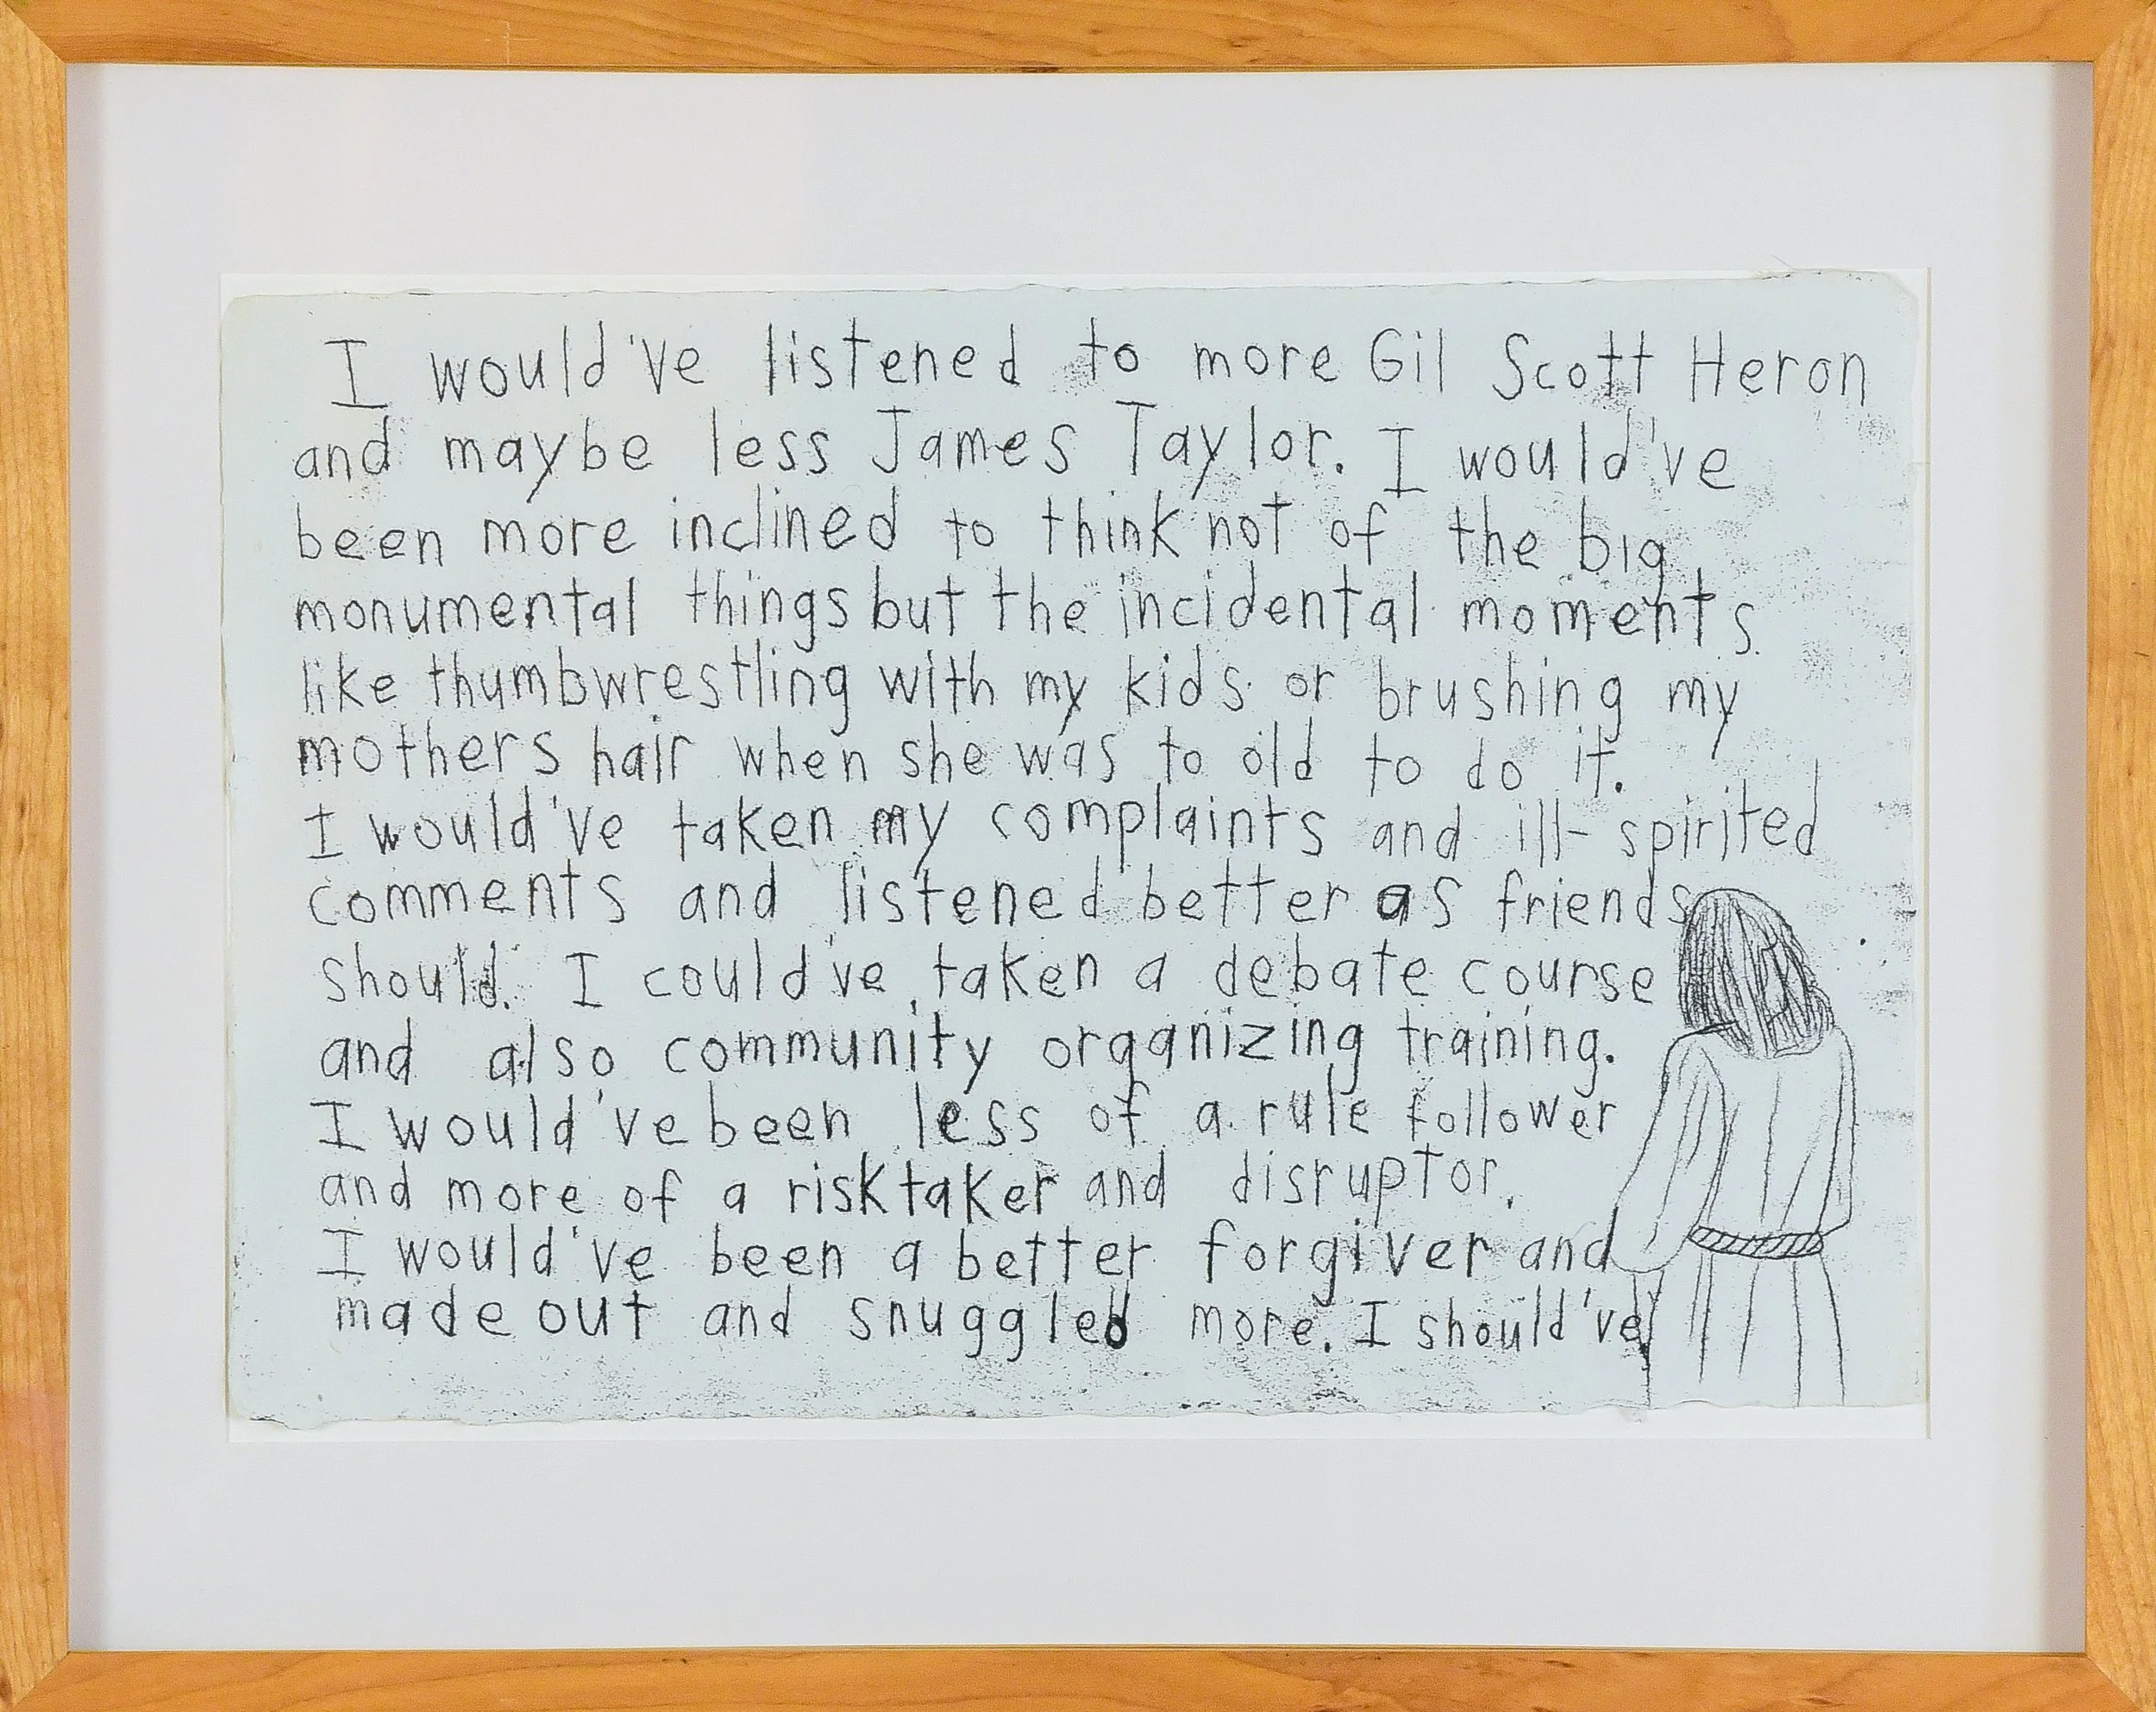 I would've listened to more Gil Scott Heron
and maybe less James Taylor. I would've
been more inclined to think not of the big
monumental things but the incidental moments
like thumbwrestling with my kids or brushing my
mothers hair when she was to old to do it.
I would've taken my complaints and ill-spirited
comments and listened better as friends
should. I could've taken a debate course
and also community organizing training.
I would've been less of a rule follower
and more of a risktaker and disruptor.
I would've been a better forgiver and
made out and snuggled more. I should've